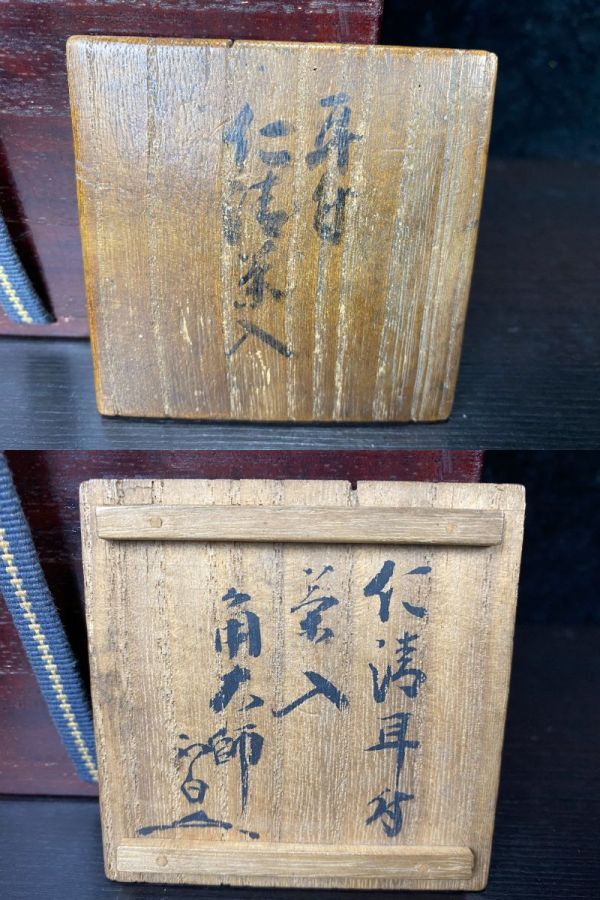 耳付
仁清茶入
仁清耳付
茶入
角大師